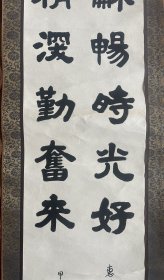 暢時光好
惠
深勤奮来
甲